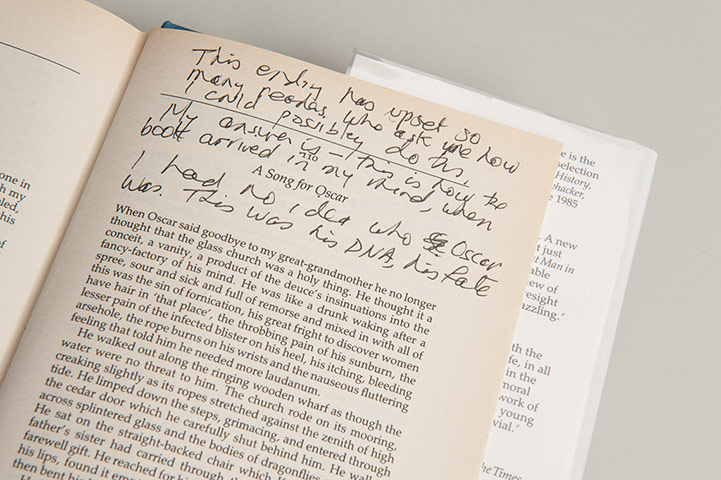 one in
h my
led,
this
of
This ending has upset so
many readers, who ask me how
I could possibly do this.
My answer is – this is how the
book arrived in my mind, when
110
A Song for Oscar
I had no idea who Oscar
was. This was his DNA, his fate
When Oscar said goodbye to my great-grandmother he no longer
thought that the glass church was a holy thing. He thought it a
conceit, a vanity, a product of the deuce's insinuations into the
fancy-factory of his mind. He was like a drunk waking after a
spree, sour and sick and full of remorse and mixed in with all of
this was the sin of fornication, his great fright to discover women
have hair in 'that place', the throbbing pain of his sunburn, the
lesser pain of the infected blister on his heel, his itching, bleeding
arsehole, the rope burns on his wrists and the nauseous fluttering
feeling that told him he needed more laudanum.
He walked out along the ringing wooden wharf as though the
water were no threat to him. The church rode on its mooring,
creaking slightly as its ropes stretched against the zenith of high
tide. He limped down the steps, grimacing, and entered through
the cedar door which he carefully shut behind him. He walk
across splintered glass and the bodies of dragonflies
He sat on the straight-backed chair which
father's sister had carried through th
farewell gift. He reached for hi
his lips, found it emp
then bent hi
e is the
selection
History,
hacker,
e 1985
A new
t just
t Man in
able
ew of
resight
azzling.'
th the
fe, in all
in the
moral
work of
young
vial.'
he Times